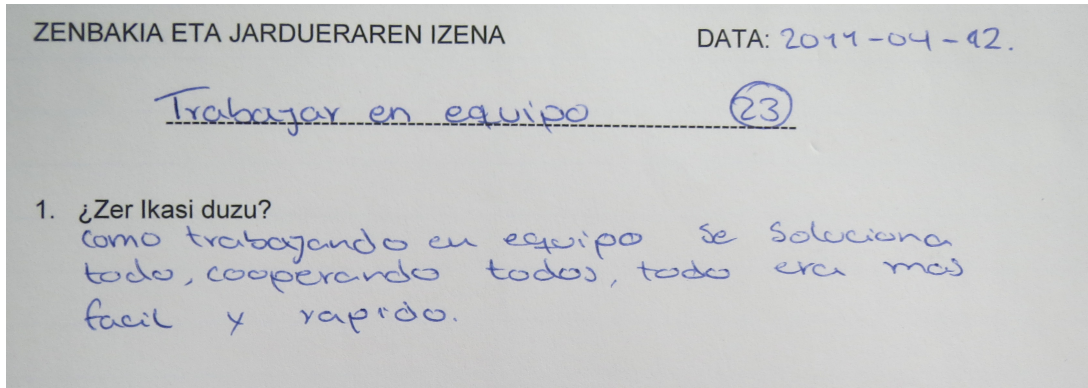 ZENBAKIA ETA JARDUERAREN IZENA DATA: 2011-04-12.
Trabajar en equipo 23
1. ¿Zer Ikasi duzu?
como trabajando en equipo se soluciona
todo, cooperando todos, todo era mas
facil y rapido.